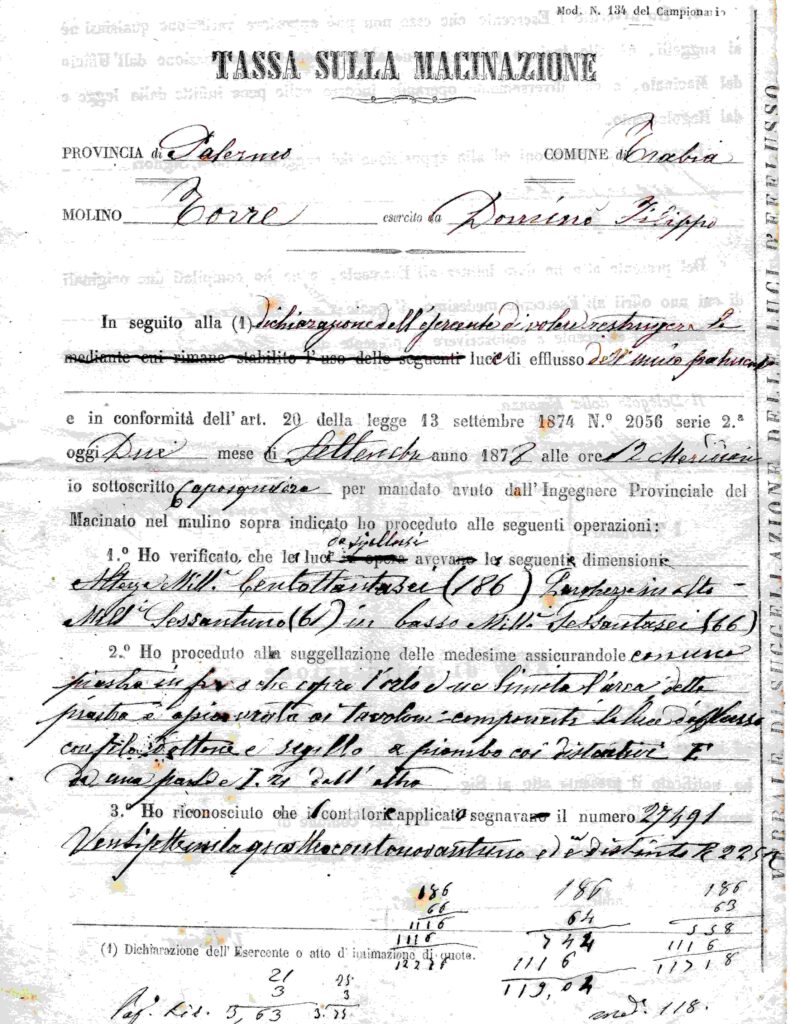 Mod. N. 134 del Campionario
TASSA SULLA MACINAZIONE
PROVINCIA di Palermo COMUNE di Trabia
MOLINO Torre esercito da Dominò Filippo
In seguito alla (1) dichiarazione dell'esercente di volere restringere le
mediante cui rimane stabilito l'uso delle seguenti luce di efflusso del
e in conformità dell'art. 20 della legge 13 settembre 1874 N.º 2056 serie 2.ª
oggi Due mese di Settembre anno 1878 alle ore 12 Meridiane
io sottoscritto Caposquadra per mandato avuto dall'Ingegnere Provinciale del
Macinato nel mulino sopra indicato ho proceduto alle seguenti operazioni:
da
1.º Ho verificato, che le luce opera avevano le seguenti dimensioni
Altezza Mill.i Centottantasei (186) Larghezza in alto
Mill.i Sessantuno (61) in basso Mill.i Sessantasei (66)
2.º Ho proceduto alla suggellazione delle medesime assicurandole con una
piastra in che copre l'orlo e ne limita l'area detta
piastra è assicurata ai tavoloni componenti la luce d'efflusso
con filo d'ottone e sigillo a piombo coi distintivi E
da una parte e I. 21 dall'altra
3.º Ho riconosciuto che il contatore applicato segnavano il numero 27491
Ventisettemilaquattrocentonovantuno ed è distinto
186 186 186
66 64 63
1116 744 558
1116 1116 1116
12276 119,04 11718
(1) Dichiarazione dell'Esercente o atto d'intimazione di quote.
21 25
3 3
5,63 3.75
med. 118.
VERBALE DI SUGGELLAZIONE DELLE LUCI D'EFFLUSSO